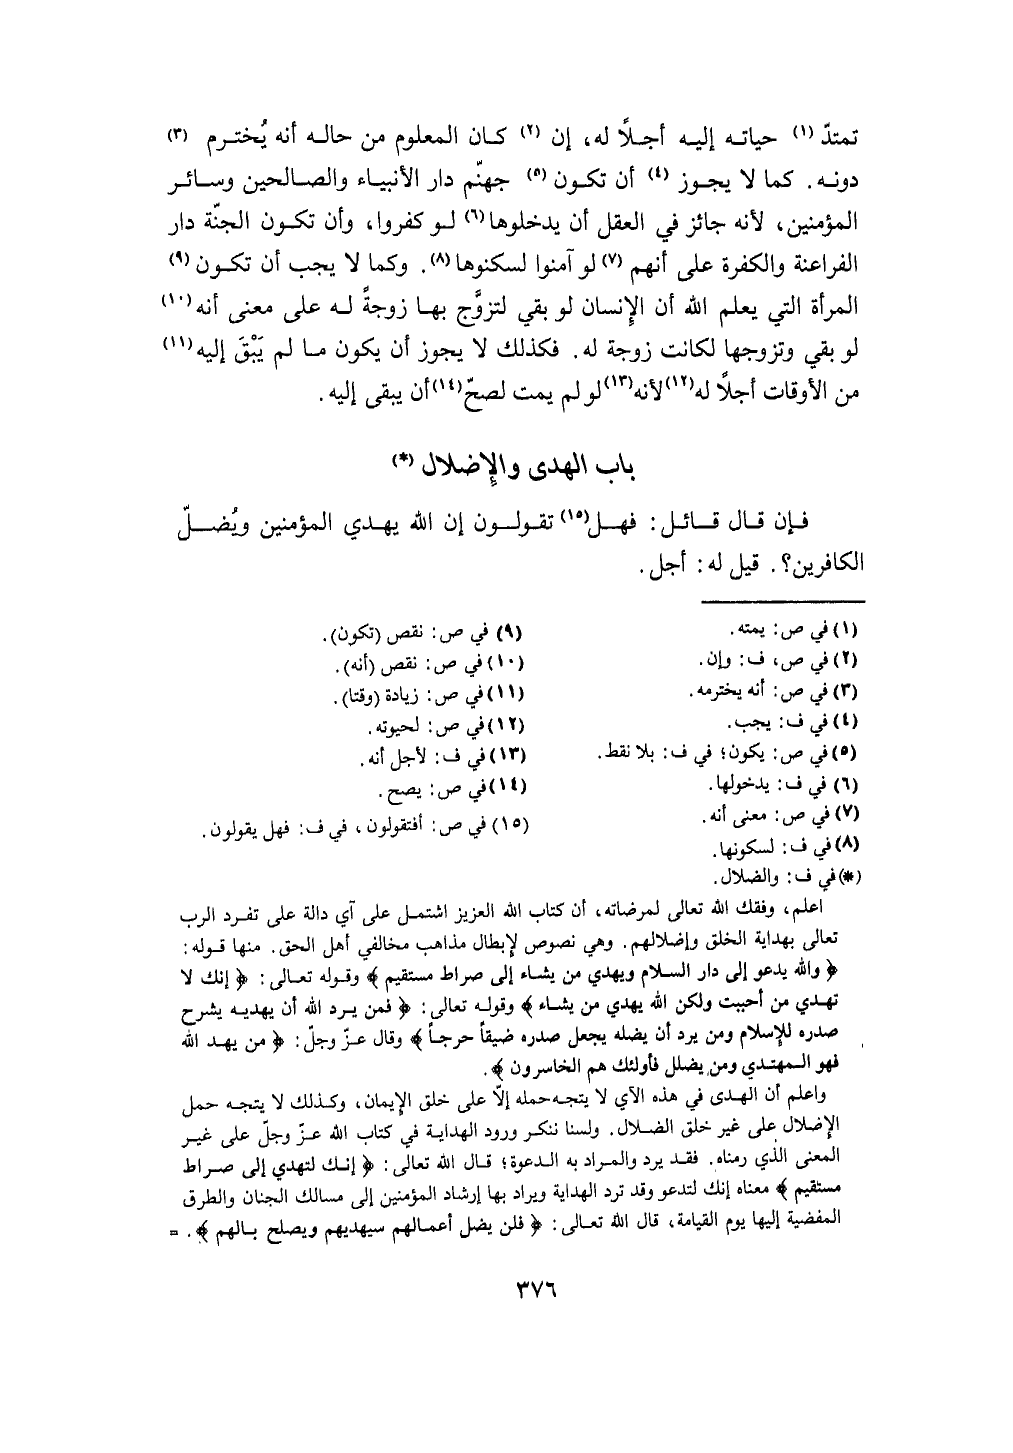 تمتدّ (١) حياته إليه أجلًا له، إن (٢) كان المعلوم من حاله أنه يُخترم (٣)
دونه. كما لا يجوز (٤) أن تكون (٥) جهنّم دار الأنبياء والصالحين وسائر
المؤمنين، لأنه جائز في العقل أن يدخلوها(٦) لو كفروا، وأن تكون الجنّة دار
الفراعنة والكفرة على أنهم (٧) لو آمنوا لسكنوها(٨). وكما لا يجب أن تكون (٩)
المرأة التي يعلم الله أن الإنسان لو بقي لتزوَّج بها زوجةً له على معنى أنه(١٠)
لو بقي وتزوجها لكانت زوجة له. فكذلك لا يجوز أن يكون ما لم يَبْقَ إليه(١١)
من الأوقات أجلًا له(١٢) لأنه(١٣) لو لم يمت لصحّ(١٤) أن يبقى إليه.
باب الهدى والإضلال (*)
فإن قال قائل: فهل(١٥) تقولون إن الله يهدي المؤمنين ويُضلّ
الكافرين؟. قيل له: أجل.
(١) في ص: يمته.
(٢) في ص، ف: وإن.
(٣) في ص: أنه يخترمه.
(٤) في ف: يجب.
(٥) في ص: يكون؛ في ف: بلا نقط.
(٦) في ف: يدخولها.
(٧) في ص: معنى أنه.
(٨) في ف: لسكونها.
(٩) في ص: نقص (تكون).
(١٠) في ص: نقص (أنه).
(١١) في ص: زيادة (وقتا).
(١٢) في ص: لحيوته.
(١٣) في ف: لأجل أنه.
(١٤) في ص: يصح.
(١٥) في ص: أفتقولون، في ف: فهل يقولون.
(*) في ف: والضلال.
اعلم، وفقك الله تعالى لمرضاته، أن كتاب الله العزيز اشتمل على آي دالة على تفرد الرب
تعالى بهداية الخلق وإضلالهم. وهي نصوص لإبطال مذاهب مخالفي أهل الحق. منها قوله:
﴿ والله يدعو إلى دار السلام ويهدي من يشاء إلى صراط مستقيم ﴾ وقوله تعالى: ﴿ إنك لا
تهدي من أحببت ولكن الله يهدي من يشاء ﴾ وقوله تعالى: ﴿ فمن يرد الله أن يهديه يشرح
صدره للإسلام ومن يرد أن يضله يجعل صدره ضيقاً حرجاً ﴾ وقال عزّ وجلّ: ﴿ من يهد الله
فهو المهتدي ومن يضلل فأولئك هم الخاسرون ﴾.
واعلم أن الهدى في هذه الآي لا يتجه حمله إلّا على خلق الإيمان، وكذلك لا يتجه حمل
الإضلال على غير خلق الضلال. ولسنا ننكر ورود الهداية في كتاب الله عزّ وجلّ على غير
المعنى الذي رمناه. فقد يرد والمراد به الدعوة؛ قال الله تعالى: ﴿ إنك لتهدي إلى صراط
مستقيم ﴾ معناه إنك لتدعو وقد ترد الهداية ويراد بها إرشاد المؤمنين إلى مسالك الجنان والطرق
المفضية إليها يوم القيامة، قال الله تعالى: ﴿ فلن يضل أعمالهم سيهديهم ويصلح بالهم ﴾. =
٣٧٦